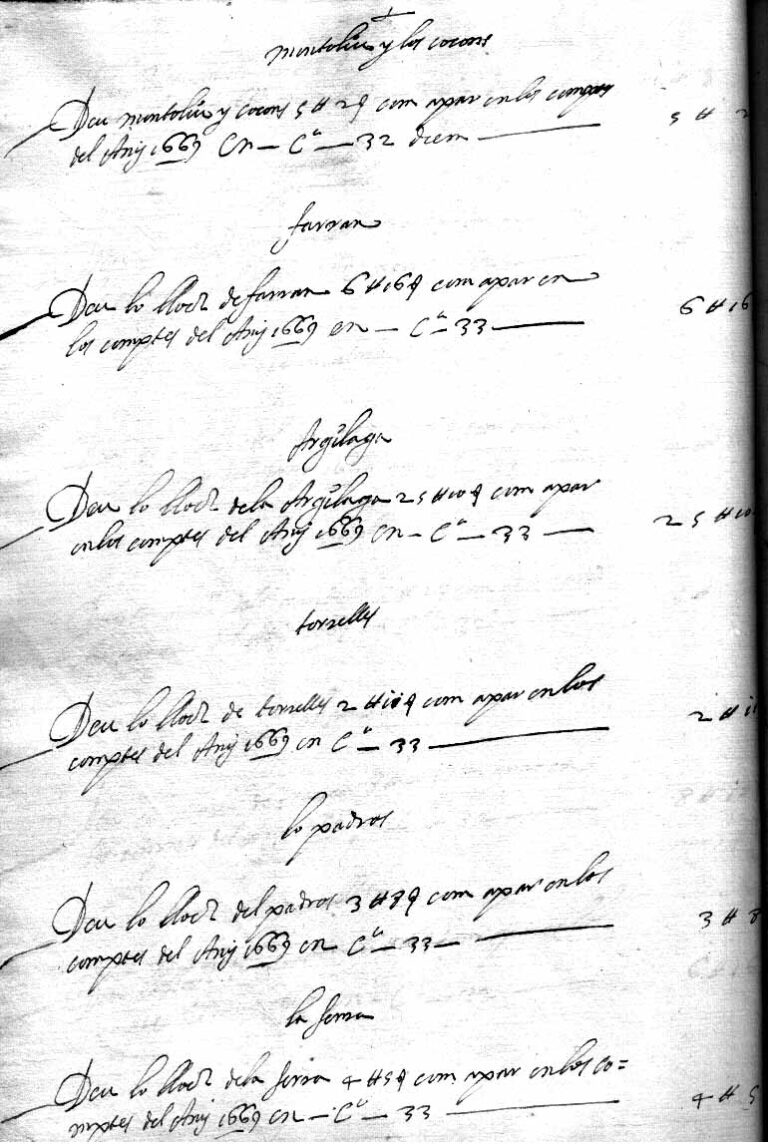 montoliu y los cocons
Deu montoliu y cocons 5 # 2 ꝗ com apar en los comptes
del Any 1669 En — Cª — 32 diem — 5 # 2
farran
Deu lo lloch de farran 6 # 16 ꝗ com apar en
los comptes del Any 1669 en — Cª 33 — 6 # 16
Argilaga
Deu lo lloch dela Argilaga 25 # 10 ꝗ com apar
en los comptes del Any 1669 en — Cª — 33 — 25 # 10
torrelles
Deu lo lloch de torrelles 2 # 11 ꝗ com apar en los
comptes del Any 1669 en Cª — 33 — 2 # 11
lo padros
Deu lo lloch del padros 3 # 8 ꝗ com apar en los
comptes del Any 1669 en Cª — 33 — 3 # 8
la serra
Deu lo lloch dela serra 4 # 5 ꝗ com apar en los co=
mptes del Any 1669 en — Cª — 33 — 4 # 5